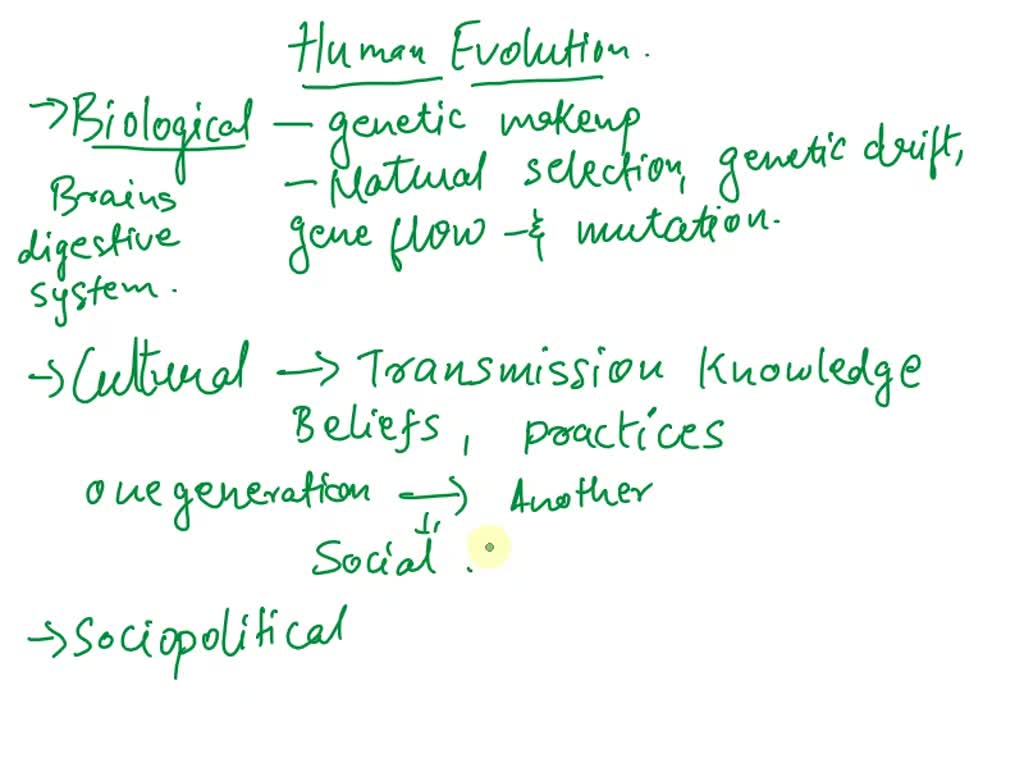 Human Evolution.
→ Biological — genetic makeup
— Natural selection, genetic drift,
gene flow & mutation.
Brains
digestive
system.
→ Cultural → Transmission Knowledge
Beliefs, practices
one generation → Another
↓
Social.
→ Sociopolitical